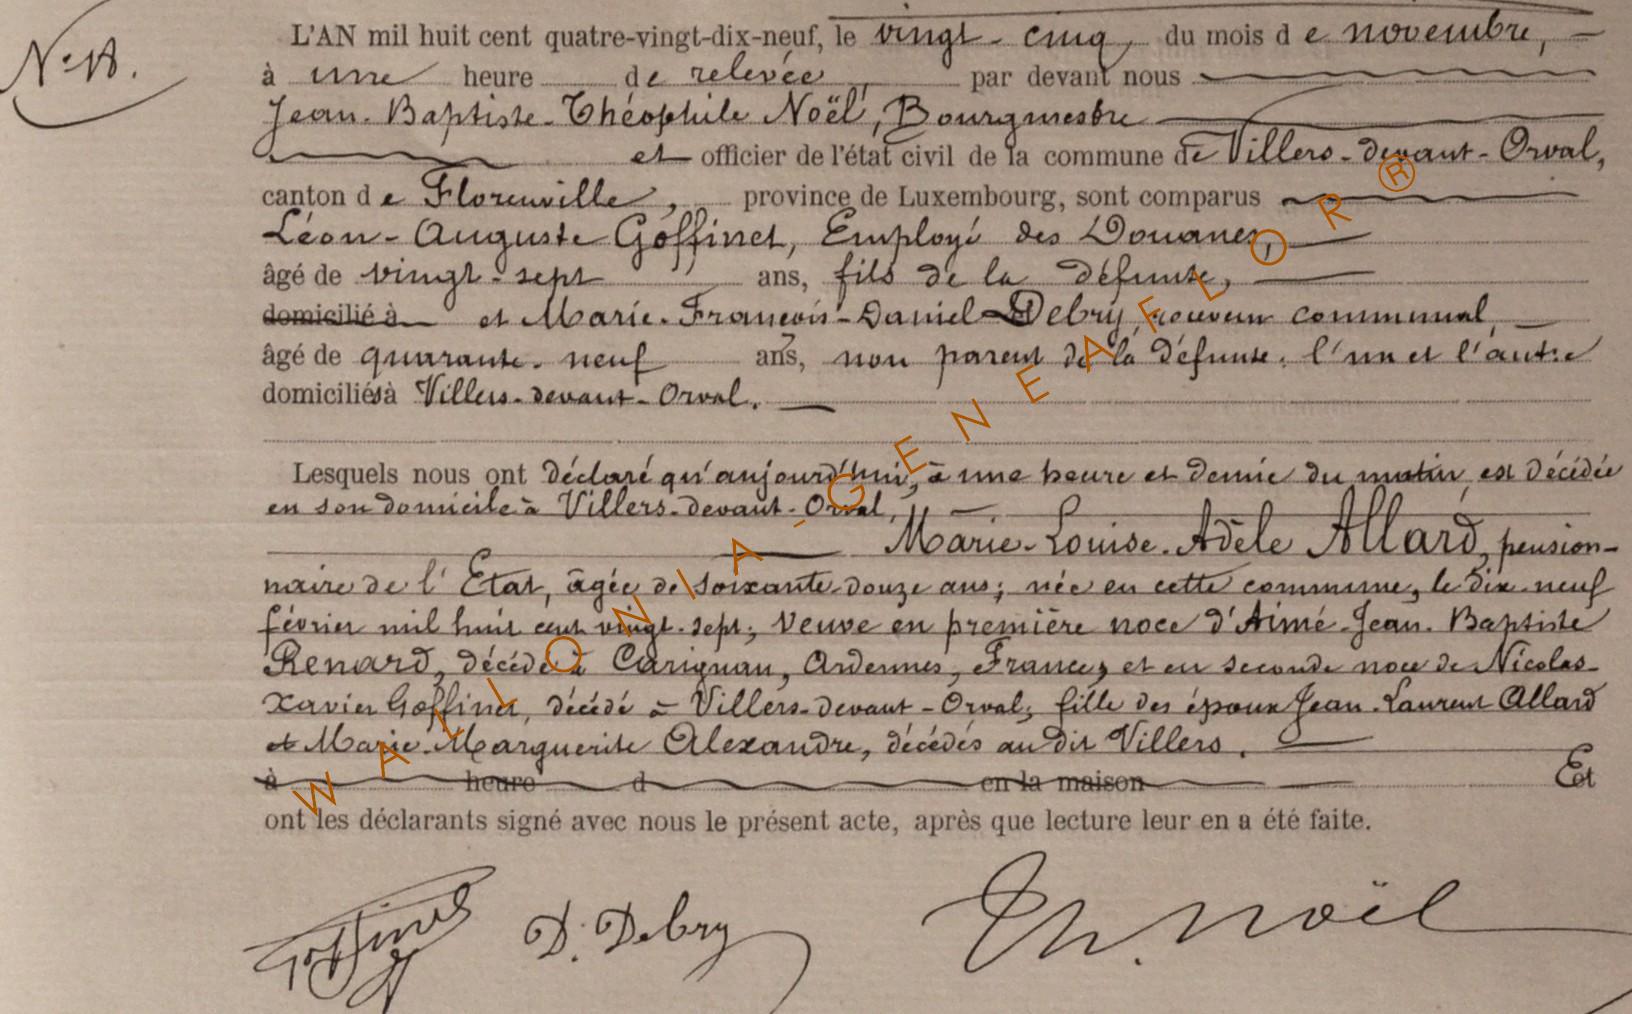 L'AN mil huit cent quatre-vingt-dix-neuf, le vingt-cinq, du mois de novembre,
N° 18.
à une heure de relevée, par devant nous
Jean-Baptiste-Théophile Noël, Bourgmestre
et officier de l'état civil de la commune de Villers-devant-Orval,
canton de Florenville, province de Luxembourg, sont comparus
Léon-Auguste Goffinet, Employé des Douanes,
âgé de vingt-sept ans, fils de la défunte,
domicilié à et Marie-François-Daniel Debry, receveur communal,
âgé de quarante-neuf ans, non parent de la défunte. l'un et l'autre
domiciliés à Villers-devant-Orval.
Lesquels nous ont déclaré qu'aujourd'hui, à une heure et demie du matin, est décédée
en son domicile à Villers-devant-Orval,
Marie-Louise-Adèle Allard, pension-
naire de l'Etat, âgée de soixante-douze ans; née en cette commune, le dix-neuf
février mil huit cent vingt-sept; veuve en première noce d'Aimé-Jean-Baptiste
Renard, décédé à Carignan, Ardennes, France, et en seconde noce de Nicolas-
Xavier Goffinet, décédé à Villers-devant-Orval; fille des époux Jean-Laurent Allard
et Marie-Marguerite Alexandre, décédés au dit Villers.
à heure d en la maison Et
ont les déclarants signé avec nous le présent acte, après que lecture leur en a été faite.
Goffinet D. Debry Th. Noël
WALLONIA-GENEAFLOR®